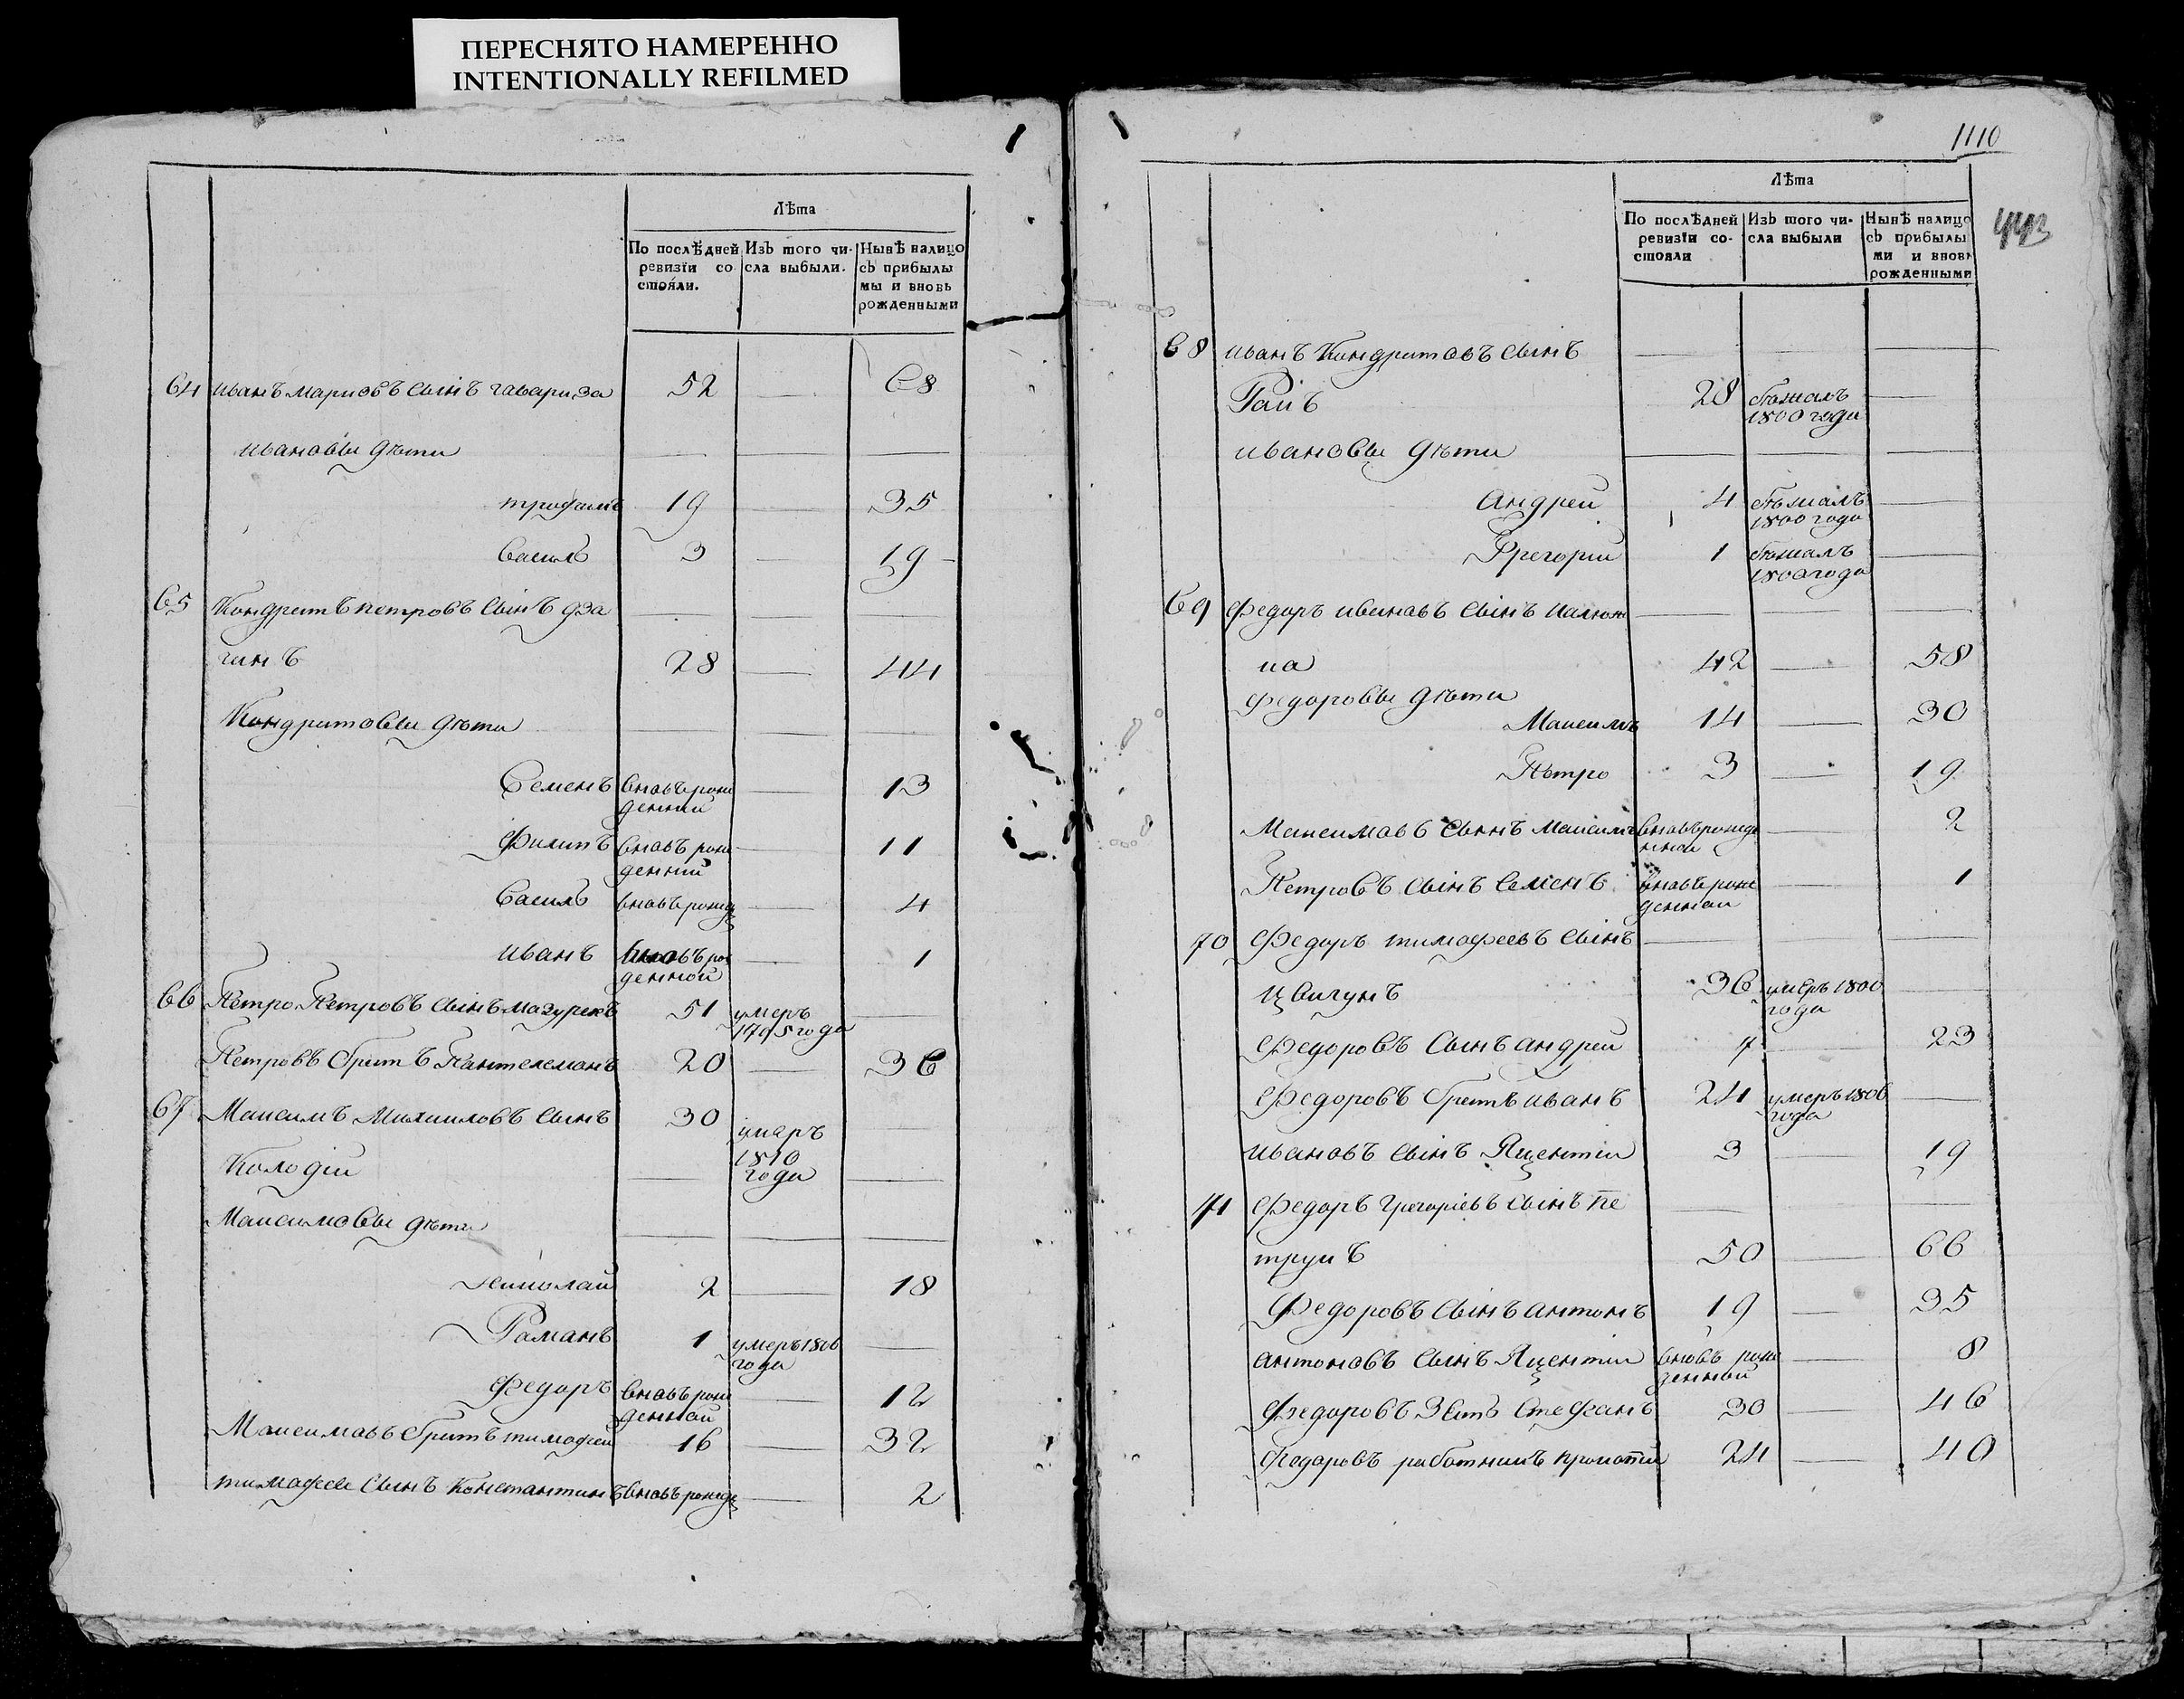 ПЕРЕСНЯТО НАМЕРЕННО
INTENTIONALLY REFILMED
Лѣта
По послѣдней ревизїи со стояли.
Изъ того чи- сла выбыли.
Нынѣ налицо съ прибылы мы и вновь рожденными
64 иванъ сынъ 52 — 68
ивановы дѣти — —
трофимъ 19 — 35
Василь 3 — 19 -
65 Кондратъ петровъ сынъ дза — — —
ганъ 28 — 44
Кондратовы дѣти — — —
Семенъ вновърож — 13
денний
Филипъ вновъ рож — 11
денний
Василь вновърожд — 4
иванъ вновъ рож — 1
денной
66 Петро Петровъ сынъ мазурекъ 51 умеръ —
1795 года
Петровъ братъ Пантелемонъ 20 — 36
67 Максимъ Михаиловъ сынъ 30 умаръ —
1810
Колодій — года —
Максимовы дѣти — — —
Николай 2 — 18
Раманъ 1 умеръ 1806 —
года
Федоръ вновъ рож — 12
денной
Максимавъ братъ тимофей 16 — 32
тимофее сынъ Константинъ вновъ рожд — 2
1110
443
Лѣта
По послѣдней ревизїи со- стояли
Изъ того чи- сла выбыли
Нынѣ налицо съ прибылы ми и вновь рожденными
68 иванъ Кондратовъ сынъ — — —
Гаиъ 28 бѣжалъ —
1800 года
ивановы дѣти — — —
Андрей 4 бѣжалъ —
1800 года
Грегорий 1 бѣжалъ —
1800 года
69 Федоръ ивановъ сынъ — — —
ка 42 — 58
федоровы дѣти
Максимъ 14 — 30
Петро 3 — 19
Максимовъ сынъ Максимъ вновърожде — 2
нной
Петровъ сынъ Семенъ вновърож — 1
денной
70 Федоръ тимофеевъ сынъ — — —
Цвигунъ 36 умеръ 1800 —
года
Федоровъ сынъ андрей 7 — 23
Федоровъ братъ иванъ 24 умеръ 1806 —
года
ивановъ сынъ Яцентій 3 — 19
71 Федоръ грегоріевъ сынъ пе — — —
трукъ 50 — 66
Федоровъ сынъ антонъ 19 — 35
антоновъ сынъ Яцентій вновъ рож — 8
денной
Федоровъ Зеть Стефанъ 30 — 46
Федаровъ работникъ прокопій 24 — 40